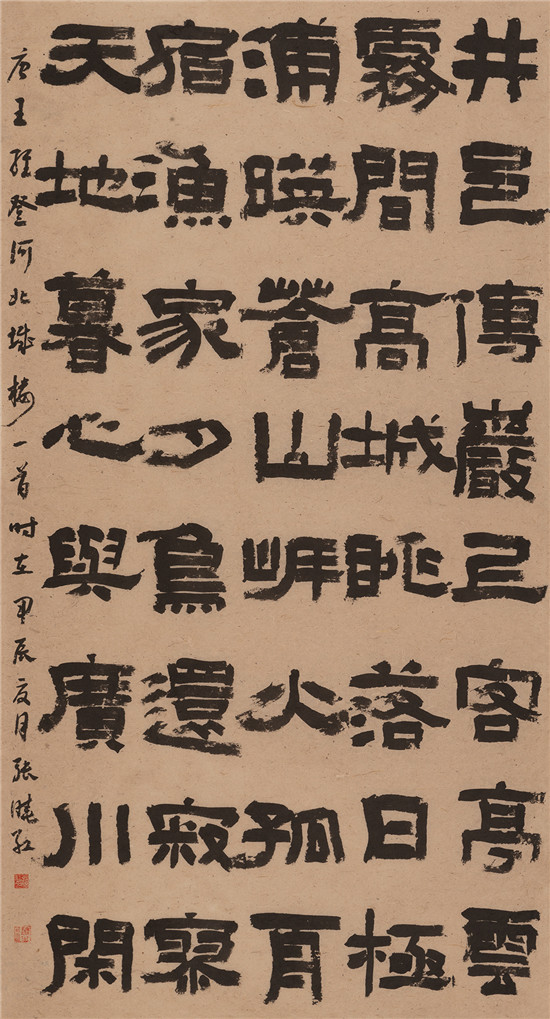 井邑傳巖上客亭雲
霧間高城眺落日極
浦暎蒼山岸火孤舟
宿漁家夕鳥還寂寞
天地暮心與廣川閑
唐王維登河北城楼一首时在甲辰夏月張曉紅